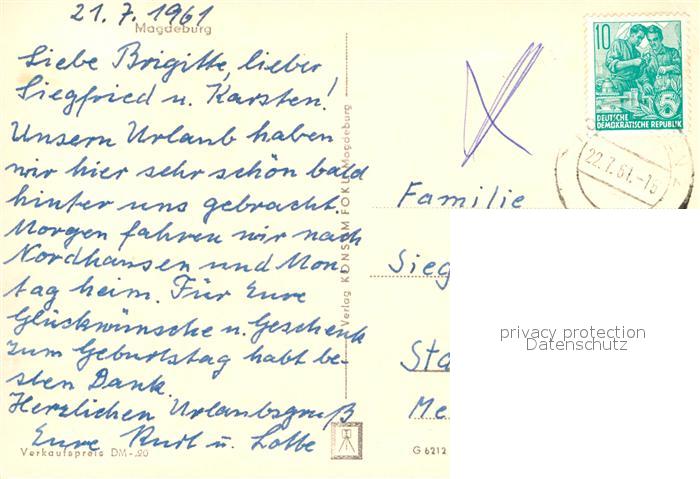 21. 7. 1961
Magdeburg
Liebe Brigitte, lieber
Siegfried u. Karsten!
Unsern Urlaub haben
wir hier sehr schön bald
hinter uns gebracht.
Morgen fahren wir nach
Nordhausen und Mon-
tag heim. Für Eure
Glückwünsche u. Geschenk
zum Geburtstag habt be-
sten Dank.
Herzlichen Urlaubsgruß
Eure Rudi u. Lotte
Verkaufspreis DM -,20
Verlag KONSUM FOKU Magdeburg
10
DEUTSCHE
DEMOKRATISCHE REPUBLIK
5
22.7.61.-15
Familie
Sieg
Sta
Me
G 6212
privacy protection
Datenschutz